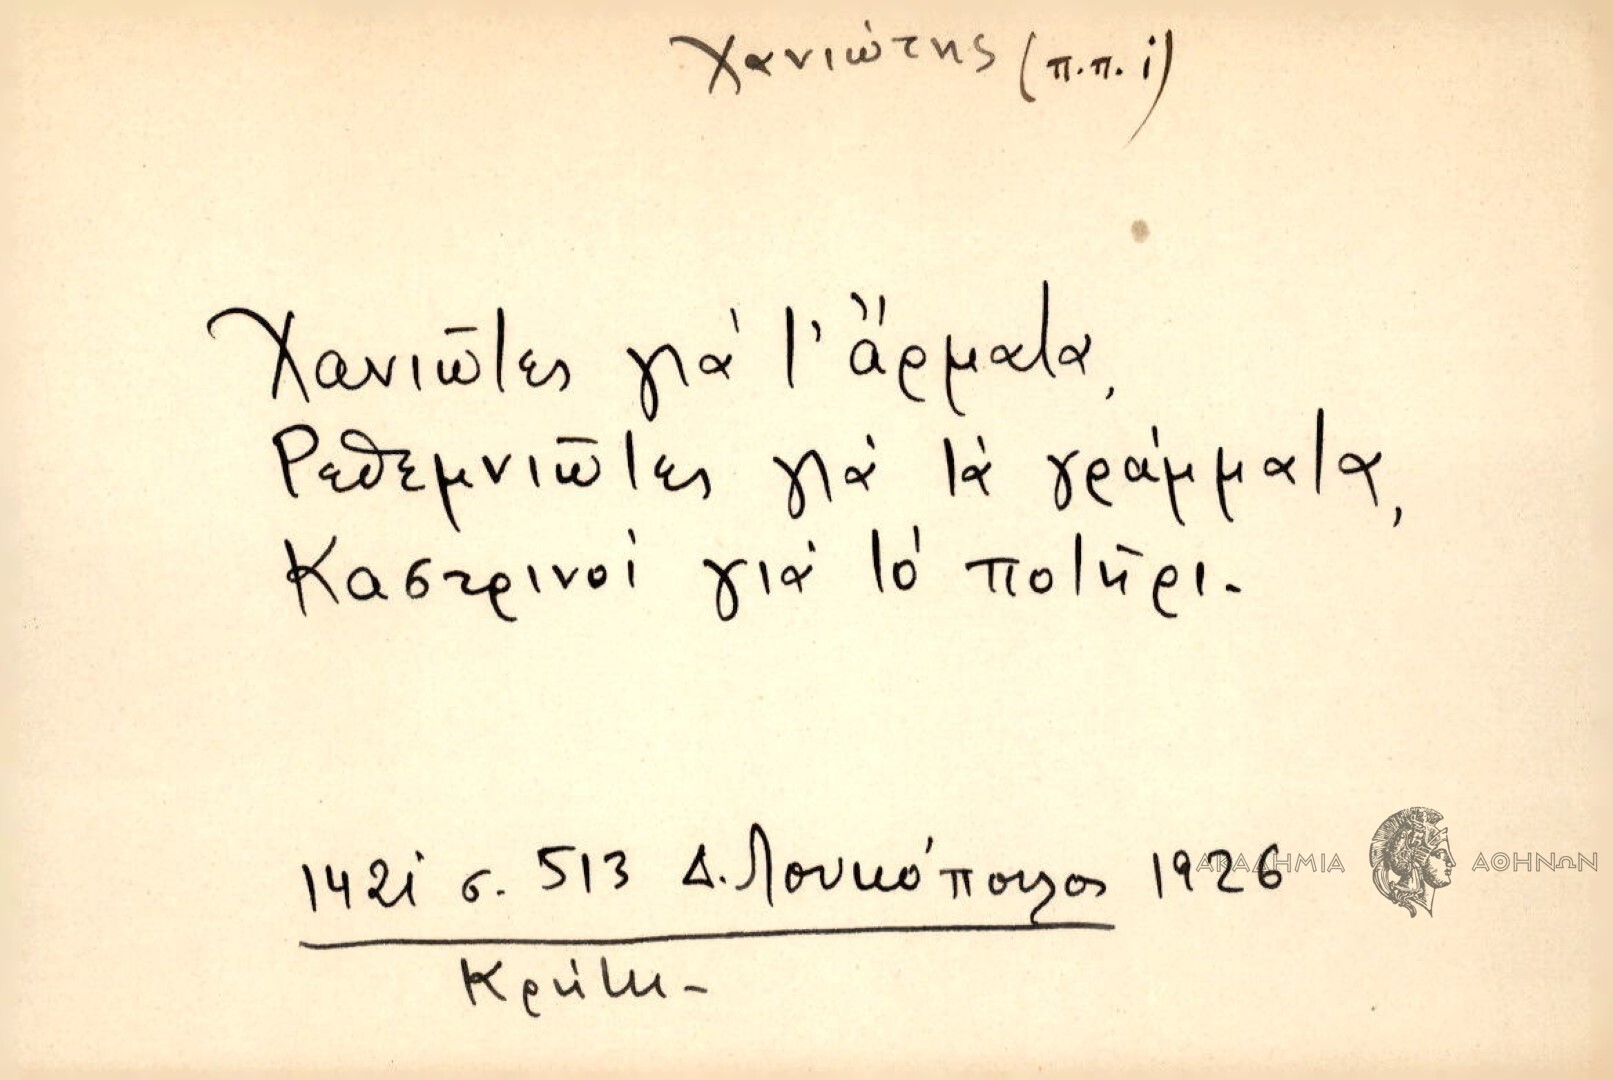 Χανιώτης (π.π. i)
Χανιῶτες γιά τ' ἄρματα,
Ρεθεμνιῶτες γιά τά γράμματα,
Καστρινοί γιά τό ποτῆρι.
1421 σ. 513 Δ. Λουκόπουλος 1926
ΑΚΑΔΗΜΙΑ ΑΘΗΝΩΝ
Κρήτη.